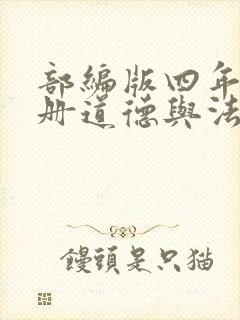 部編版四年
册道德與法
饅頭是只猫